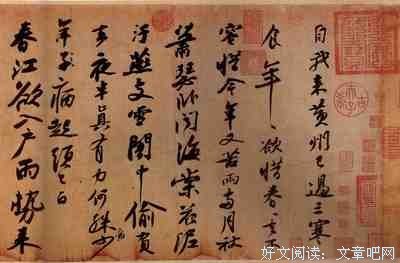 自我來黃州已過三寒
食年〻欲惜春〻去不
容惜今年又苦雨兩月秋
蕭瑟臥聞海棠花泥
汙燕支雪闇中偷負
去夜半真有力何殊少
病
年子病起頭已白
春江欲入戶雨勢來
好文阅读：文章吧网